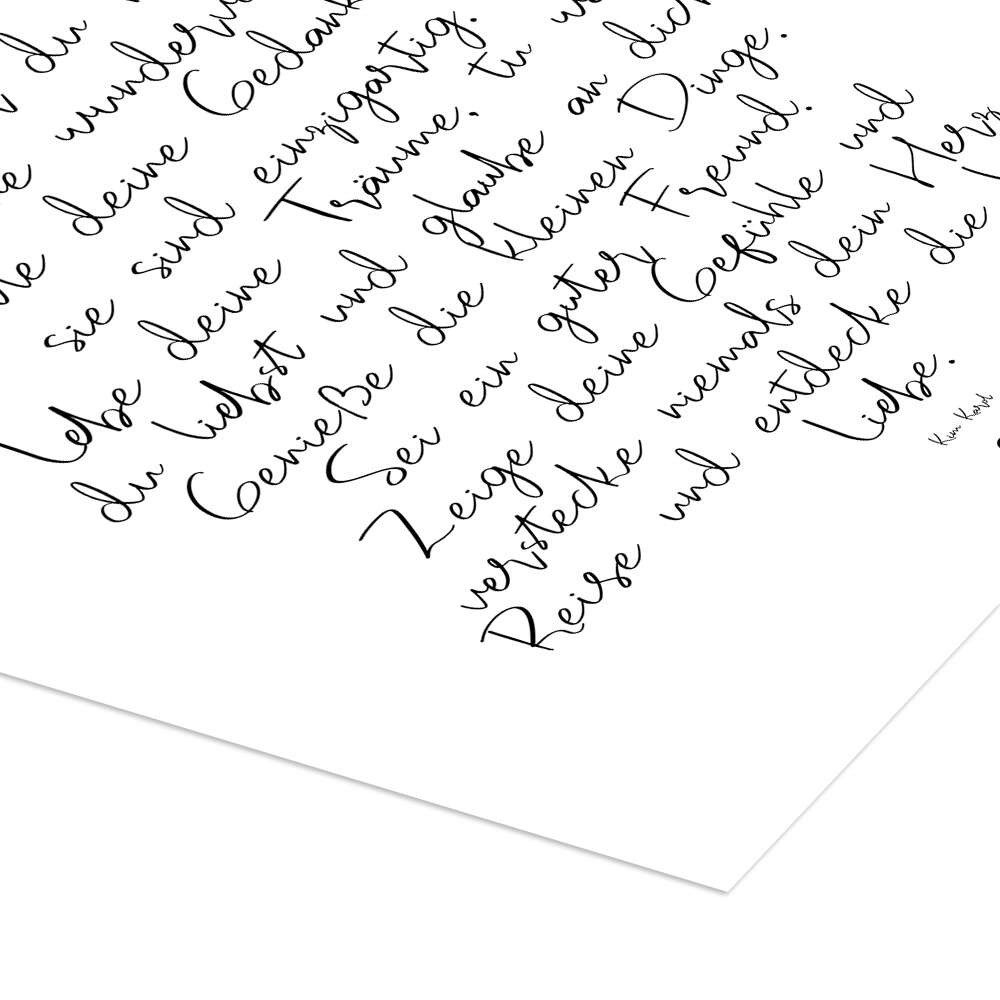 du
wunderv
deine Gedank
sie sind einzigartig.
Lebe deine Träume, tu
du liebst und glaube an dich
Genieße die kleinen Dinge.
Sei ein guter Freund.
Zeige deine Gefühle und
verstecke niemals dein Herz
Reise und entdecke die
Liebe.